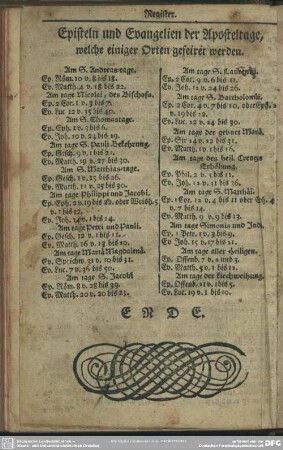 Register.
Episteln und Evangelien der Aposteltage,
welche einiger Orten gefeiret werden.
Am S. Andreas-tage.
Ep. Röm. 10 v. 8 bis 18.
Ev. Matth. 4 v. 18 bis 22.
Am tage Nicolai, des Bischofs.
Ep. 2 Cor. 1 v. 3 bis 7.
Ev. Luc. 12 v. 35 bis 40.
Am S. Thomastage.
Ep. Eph. 1 v. 3 bis 6.
Ev. Joh. 20 v. 24 bis 29.
Am tage S. Pauli Bekehrung.
Ep. Gesch. 9 v. 1 bis 22.
Ev. Matth. 19 v. 27 bis 30.
Am S. Matthias-tage.
Ep. Gesch. 1 v. 15 bis 26.
Ev. Matth. 11 v. 25 bis 30.
Am tage Philippi und Jacobi.
Ep. Eph. 2 v. 19 bis 22. oder Weish. 5
v. 1 bis 12.
Ev. Joh. 14 v. 1 bis 14.
Am tage Petri und Pauli.
Ep. Gesch. 12 v. 1 bis 11.
Ev. Matth. 16 v. 13 bis 20.
Am tage Mariä Magdalenä.
Ep. Sprichw. 31 v. 10 bis 31.
Ev. Luc. 7 v. 36 bis 50.
Am tage S. Jacobi
Ep. Röm. 8 v. 28 bis 39.
Ev. Matth. 20 v. 20 bis 23.
Am tage S. Laurentii.
Ep. 2 Cor. 9 v. 6 bis 11.
Ev. Joh. 12 v. 24 bis 26.
Am tage S. Bartholomäi.
Ep. 2 Cor. 4 v. 7 bis 10, oder Eph. 2
v. 19 bis 22.
Ev. Luc. 22 v. 24 bis 30.
Am tage der geburt Mariä.
Ep. Sir. 24 v. 22 bis 31.
Ev. Matth. 1 v. 1 bis 16.
Am tage des heil. Creuzes
Erhöhung.
Ep. Phil. 2 v. 5 bis 11.
Ev. Joh. 12 v. 31 bis 36.
Am tage S. Matthäi.
Ep. 1 Cor. 12 v. 4 bis 11 oder Eph. 4
v. 7 bis 14.
Ev. Matth. 9 v. 9 bis 13.
Am tage Simonis und Judä.
Ep. 1 Petr. 1 v. 3 bis 9.
Ev. Joh. 15 v. 17 bis 21.
Am tage aller Heiligen.
Ep. Offenb. 7 v. 2 und 3.
Ev. Matth. 5 v. 1 bis 12.
Am tage der Kirchweihung.
Ep. Offenb. 21 v. 1 bis 5.
Ev. Luc. 19 v. 1 bis 10.
E N D E.